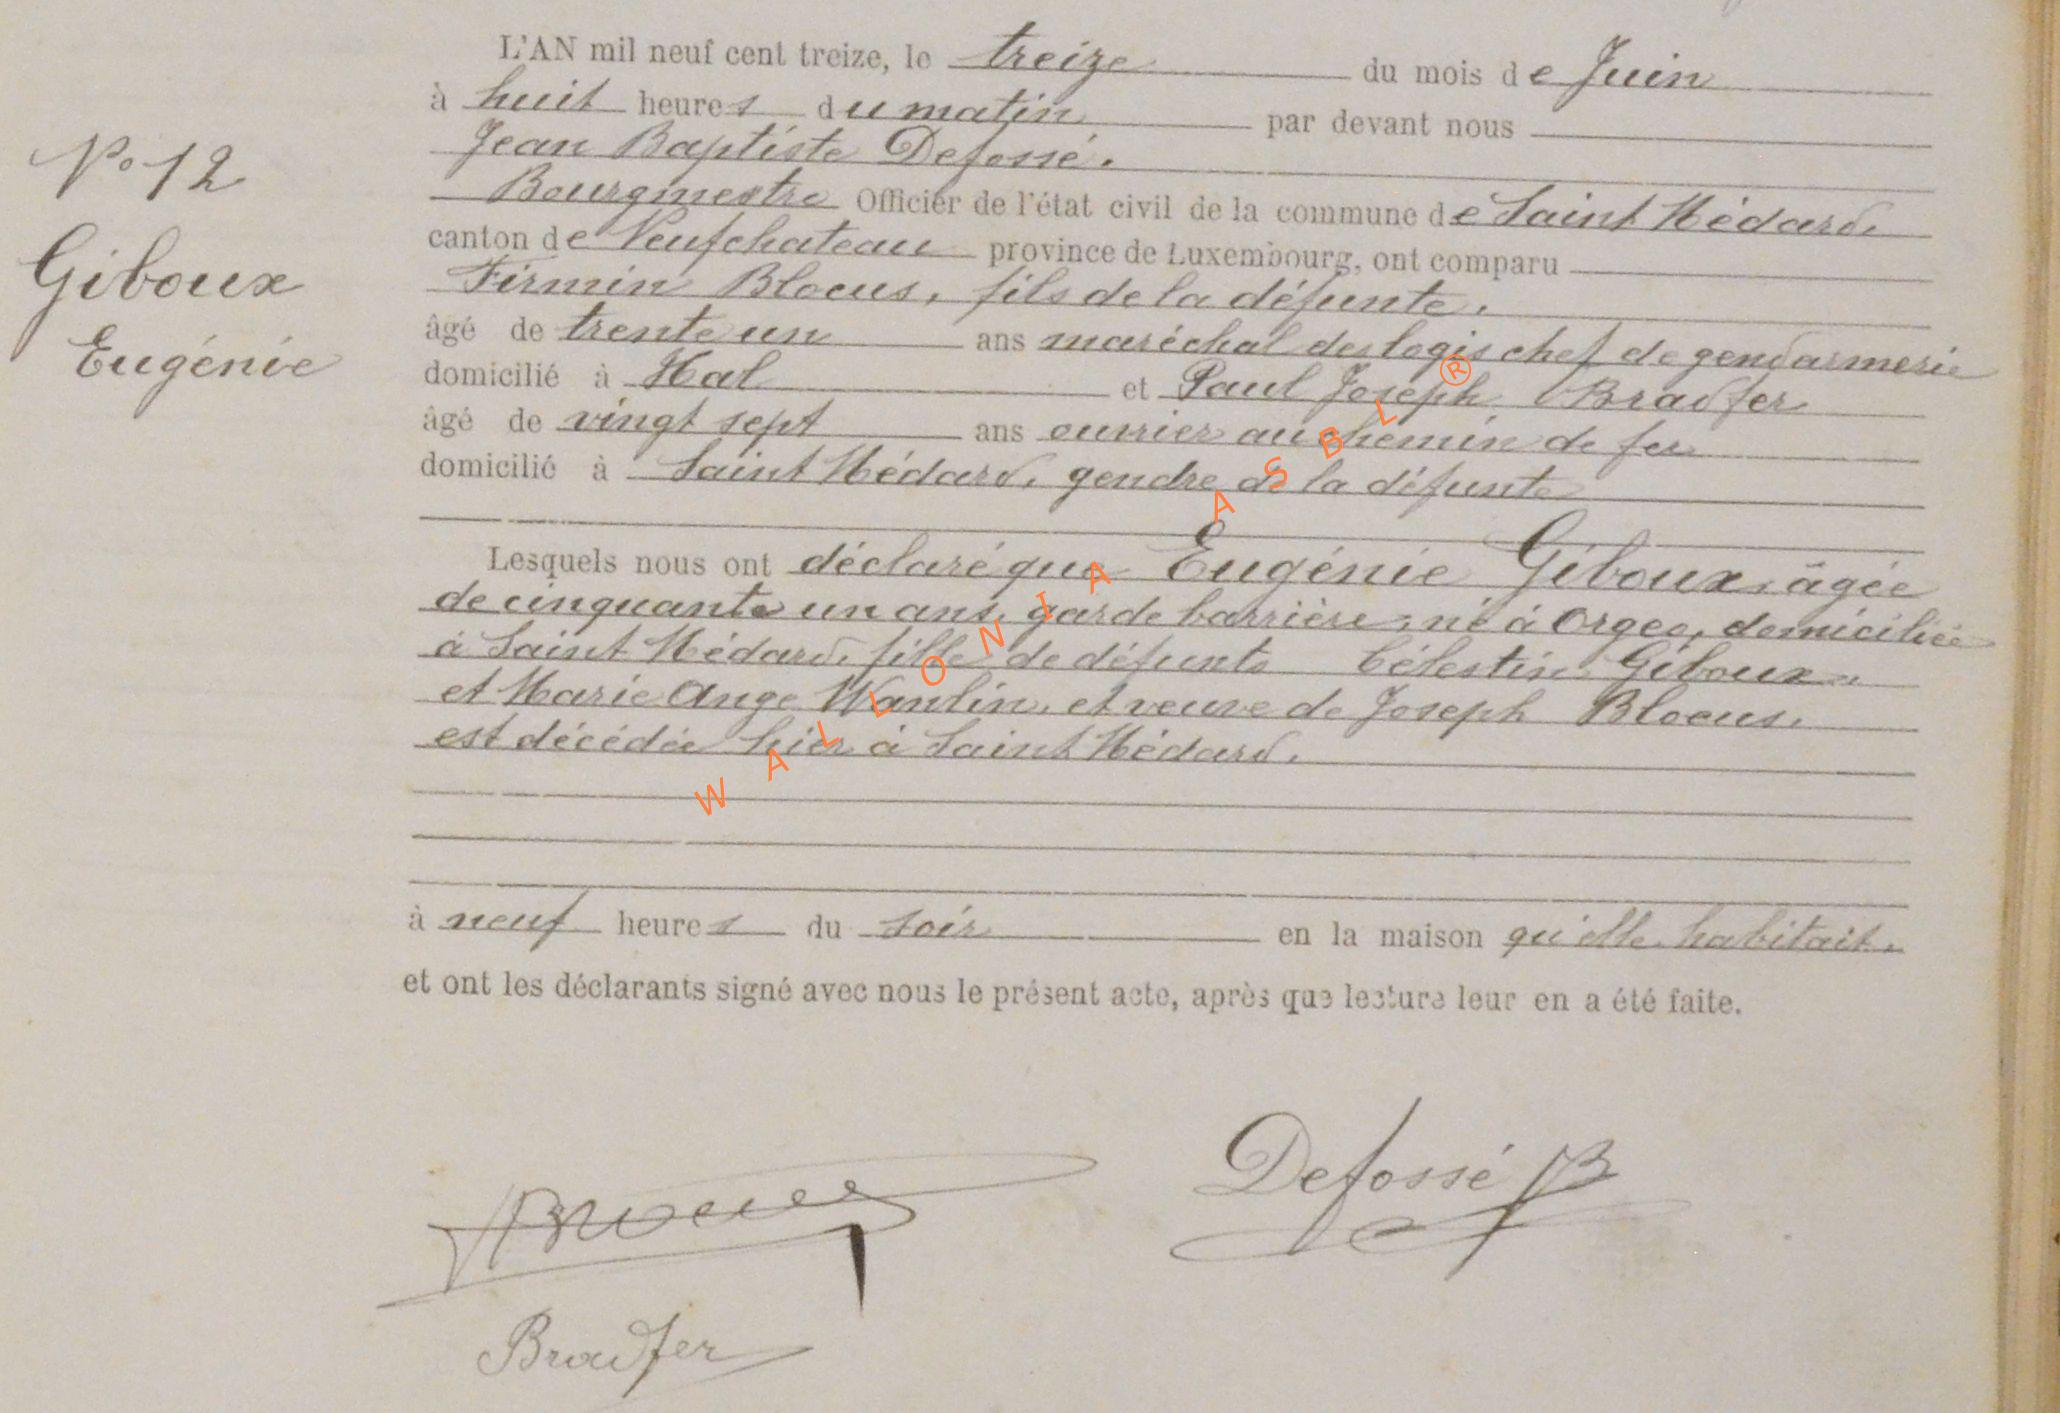 L'AN mil neuf cent treize, le treize du mois de Juin
à huit heures du matin par devant nous
Jean Baptiste Defossé.
Bourgmestre Officier de l'état civil de la commune de Saint Médard,
canton de Neufchateau province de Luxembourg, ont comparu
Firmin Blocus, fils de la défunte,
âgé de trente un ans maréchal des logis chef de gendarmerie
domicilié à Hal et Paul Joseph Bradfer
âgé de vingt sept ans ouvrier au chemin de fer
domicilié à Saint Médard, gendre de la défunte
N° 12
Giboux
Eugénie
Lesquels nous ont déclaré que Eugénie Giboux, âgée
de cinquante un ans, garde barrière, né à Orgeo, domiciliée
à Saint Médard, fille de défunts Célestin Giboux
et Marie Ange Wanlin, et veuve de Joseph Blocus,
est décédée hier à Saint Médard,
à neuf heures du soir en la maison qu'elle habitait.
et ont les déclarants signé avec nous le présent acte, après que lecture leur en a été faite.
Defossé JB
Bradfer
WALLONIA ASBL ®